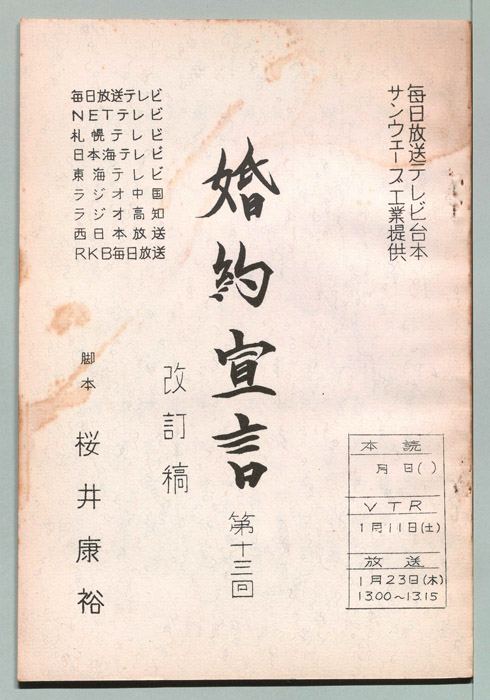 毎日放送テレビ台本
サンウェーブ工業提供
婚約宣言
第十三回
改訂稿
毎日放送テレビ
NETテレビ
札幌テレビ
日本海テレビ
東海テレビ
ラジオ中国
ラジオ高知
西日本放送
RKB毎日放送
脚本
桜井康裕
本読
月日()
VTR
1月11日(土)
放送
1月23日(木)
13.00〜13.15